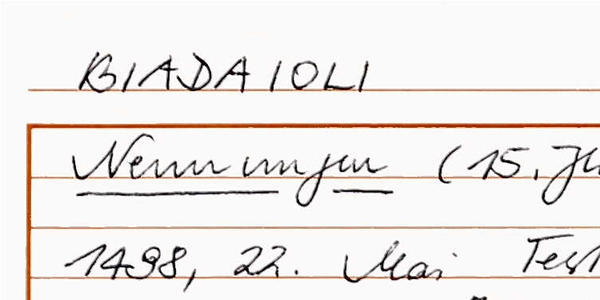 BIADAIOLI
Nennungen (15. Jh
1498, 22. Mai Test